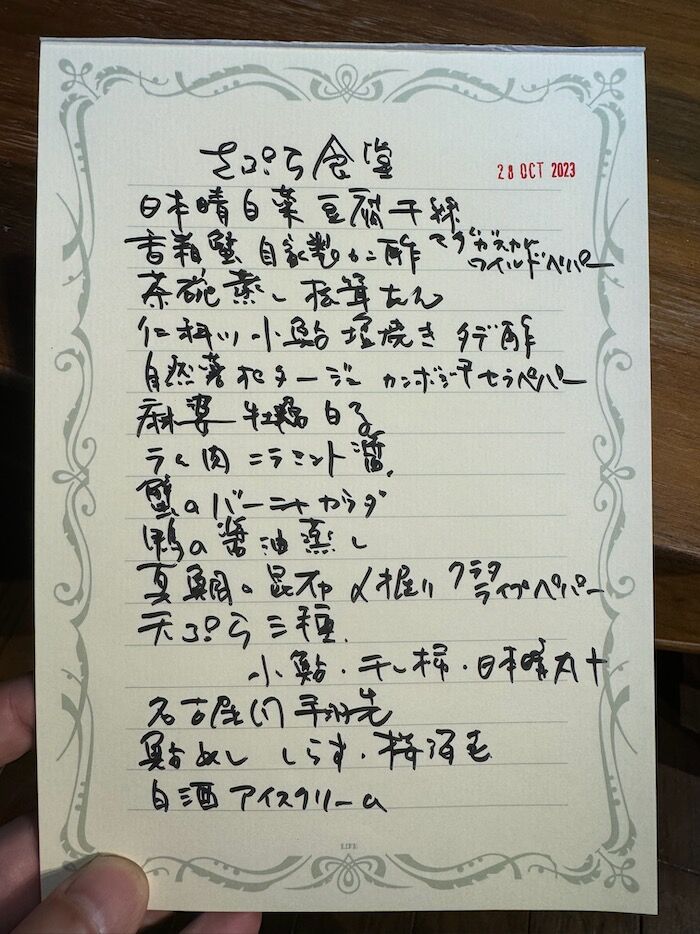 さぷら食堂
28 OCT 2023
日本晴 白菜 豆腐干絲
香箱蟹 自家製カニ酢 マダガスカル ワイルドペパー
茶碗蒸し 松茸あん
仁科川 小鮎 塩焼き タデ酢
自然薯 ポタージュ カンボジア セラペパー
麻婆 牡蠣 白子
ラム肉 ニラミント醤
蟹のバーニャカウダ
鴨の醤油蒸し
真鯛の昆布〆握り クラタ ライプペパー
天ぷら三種
小鮎・干し柿・日本晴丸十
名古屋 手羽先
鮎めし しらす・桜海老
白酒 アイスクリーム
LIFE